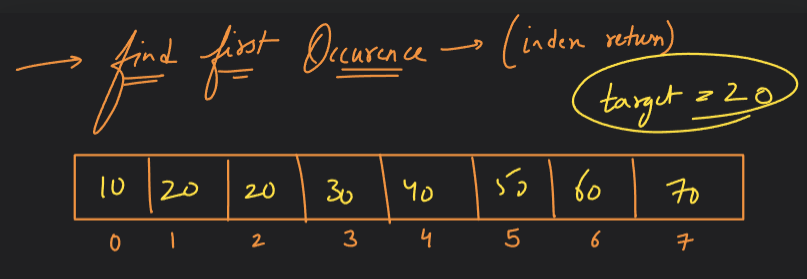 → find first Occurence → (index return)
target = 20
10 20 20 30 40 50 60 70
0 1 2 3 4 5 6 7